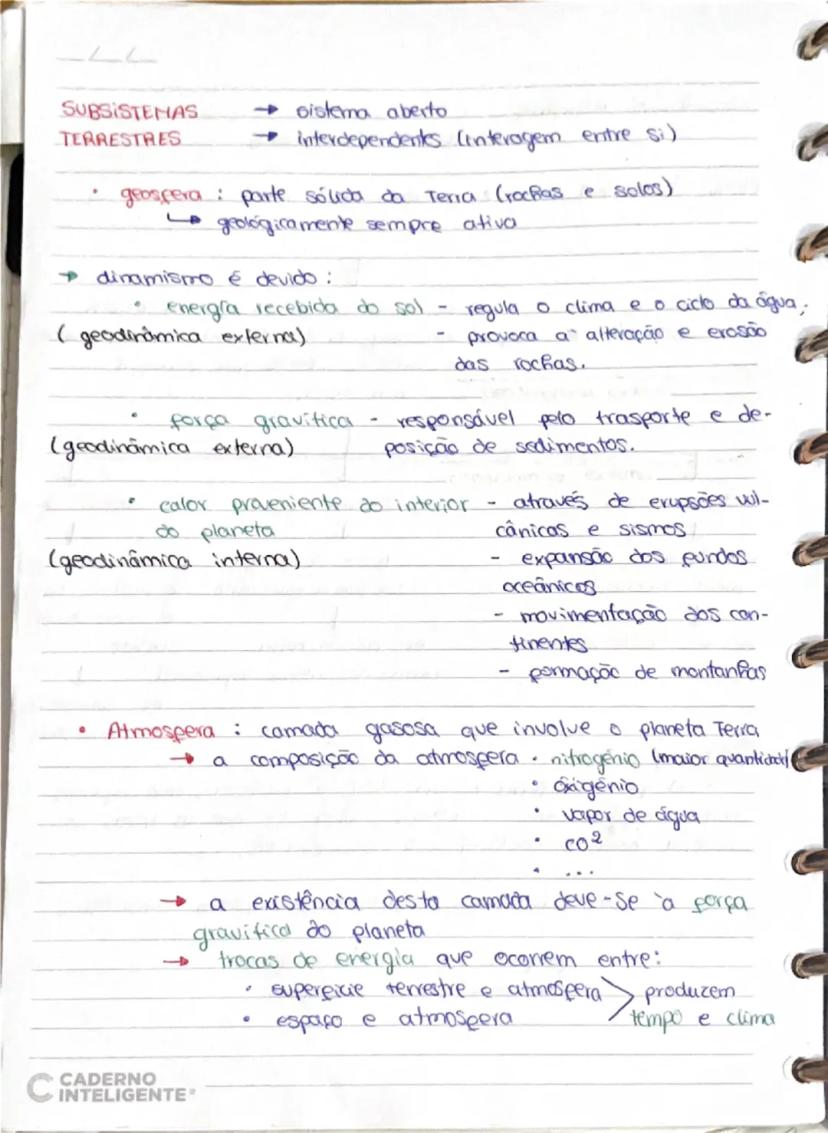 SUBSISTEMAS → sistema aberto
TERRESTRES → interdependentes (interagem entre si)
• geosfera : parte sólida da Terra (rochas e solos)
↳ geológicamente sempre ativa
→ dinamismo é devido :
• energia recebida do sol - regula o clima e o ciclo da água;
(geodinâmica externa) - provoca a alteração e erosão
das rochas.
• força gravítica - responsável pelo trasporte e de-
(geodinâmica externa) posição de sedimentos.
• calor proveniente do interior - através de erupsões vul-
do planeta cânicas e sismos
(geodinâmica interna) - expansão dos fundos
oceânicos
- movimentação dos con-
tinentes
- formação de montanhas
• Atmosfera : camada gasosa que involve o planeta Terra
→ a composição da atmosfera • nitrogénio (maior quantidade)
• óxigénio
• vapor de água
• CO²
• ...
→ a existência desta camada deve-se à força
gravítica do planeta
→ trocas de energia que ocorrem entre:
• superfície terrestre e atmosfera > produzem
• espaço e atmosfera tempo e clima
CADERNO
INTELIGENTE®